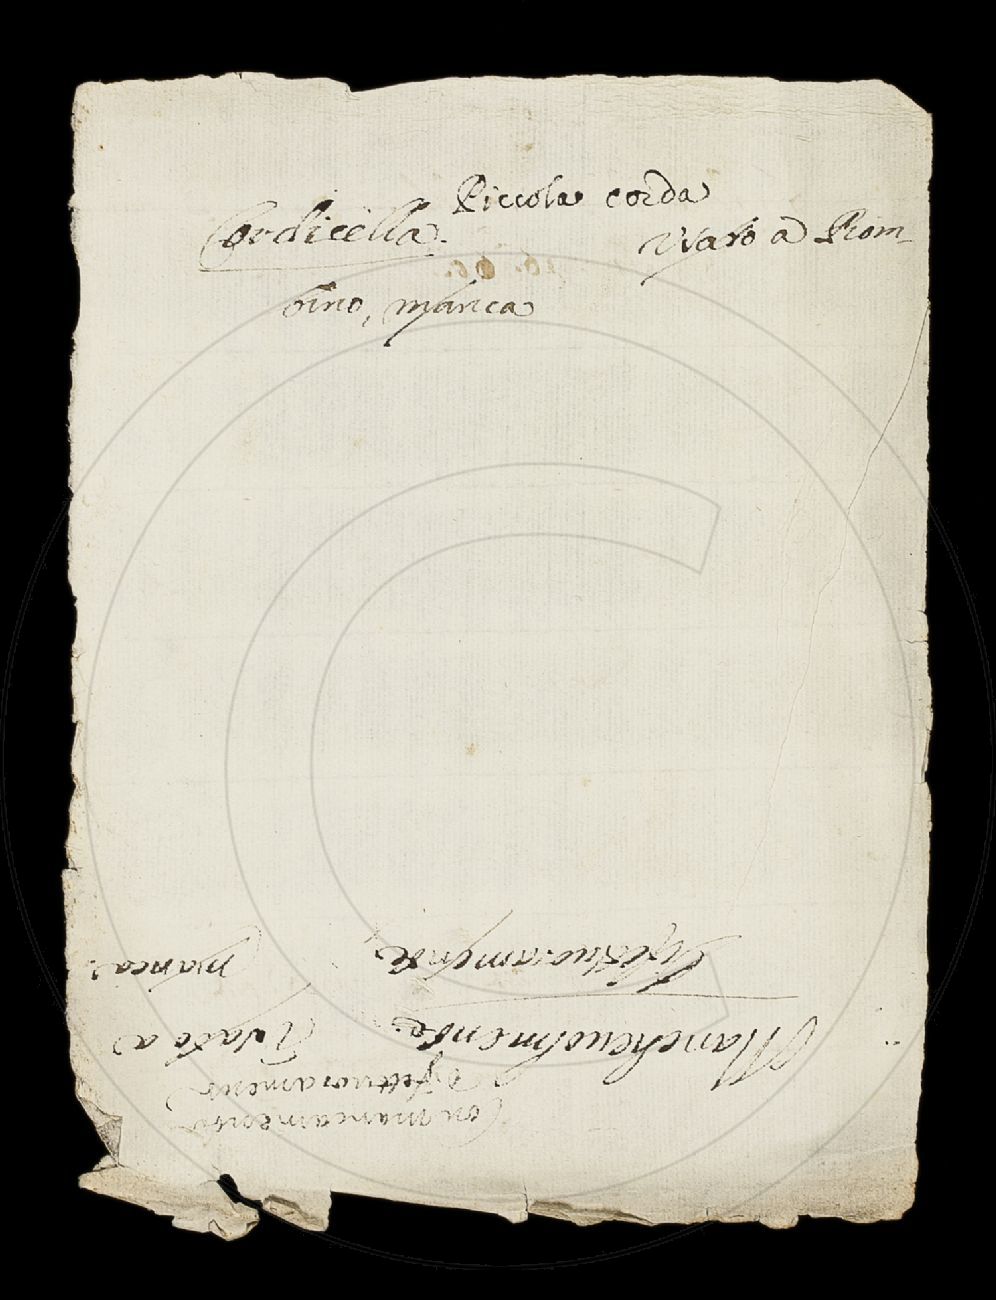 Piccola corda
Cordicella.
Usato a Rom-
bino, manca
Mancheuolmente.
Usato a
Con mancamento
Difettuosamente
manca